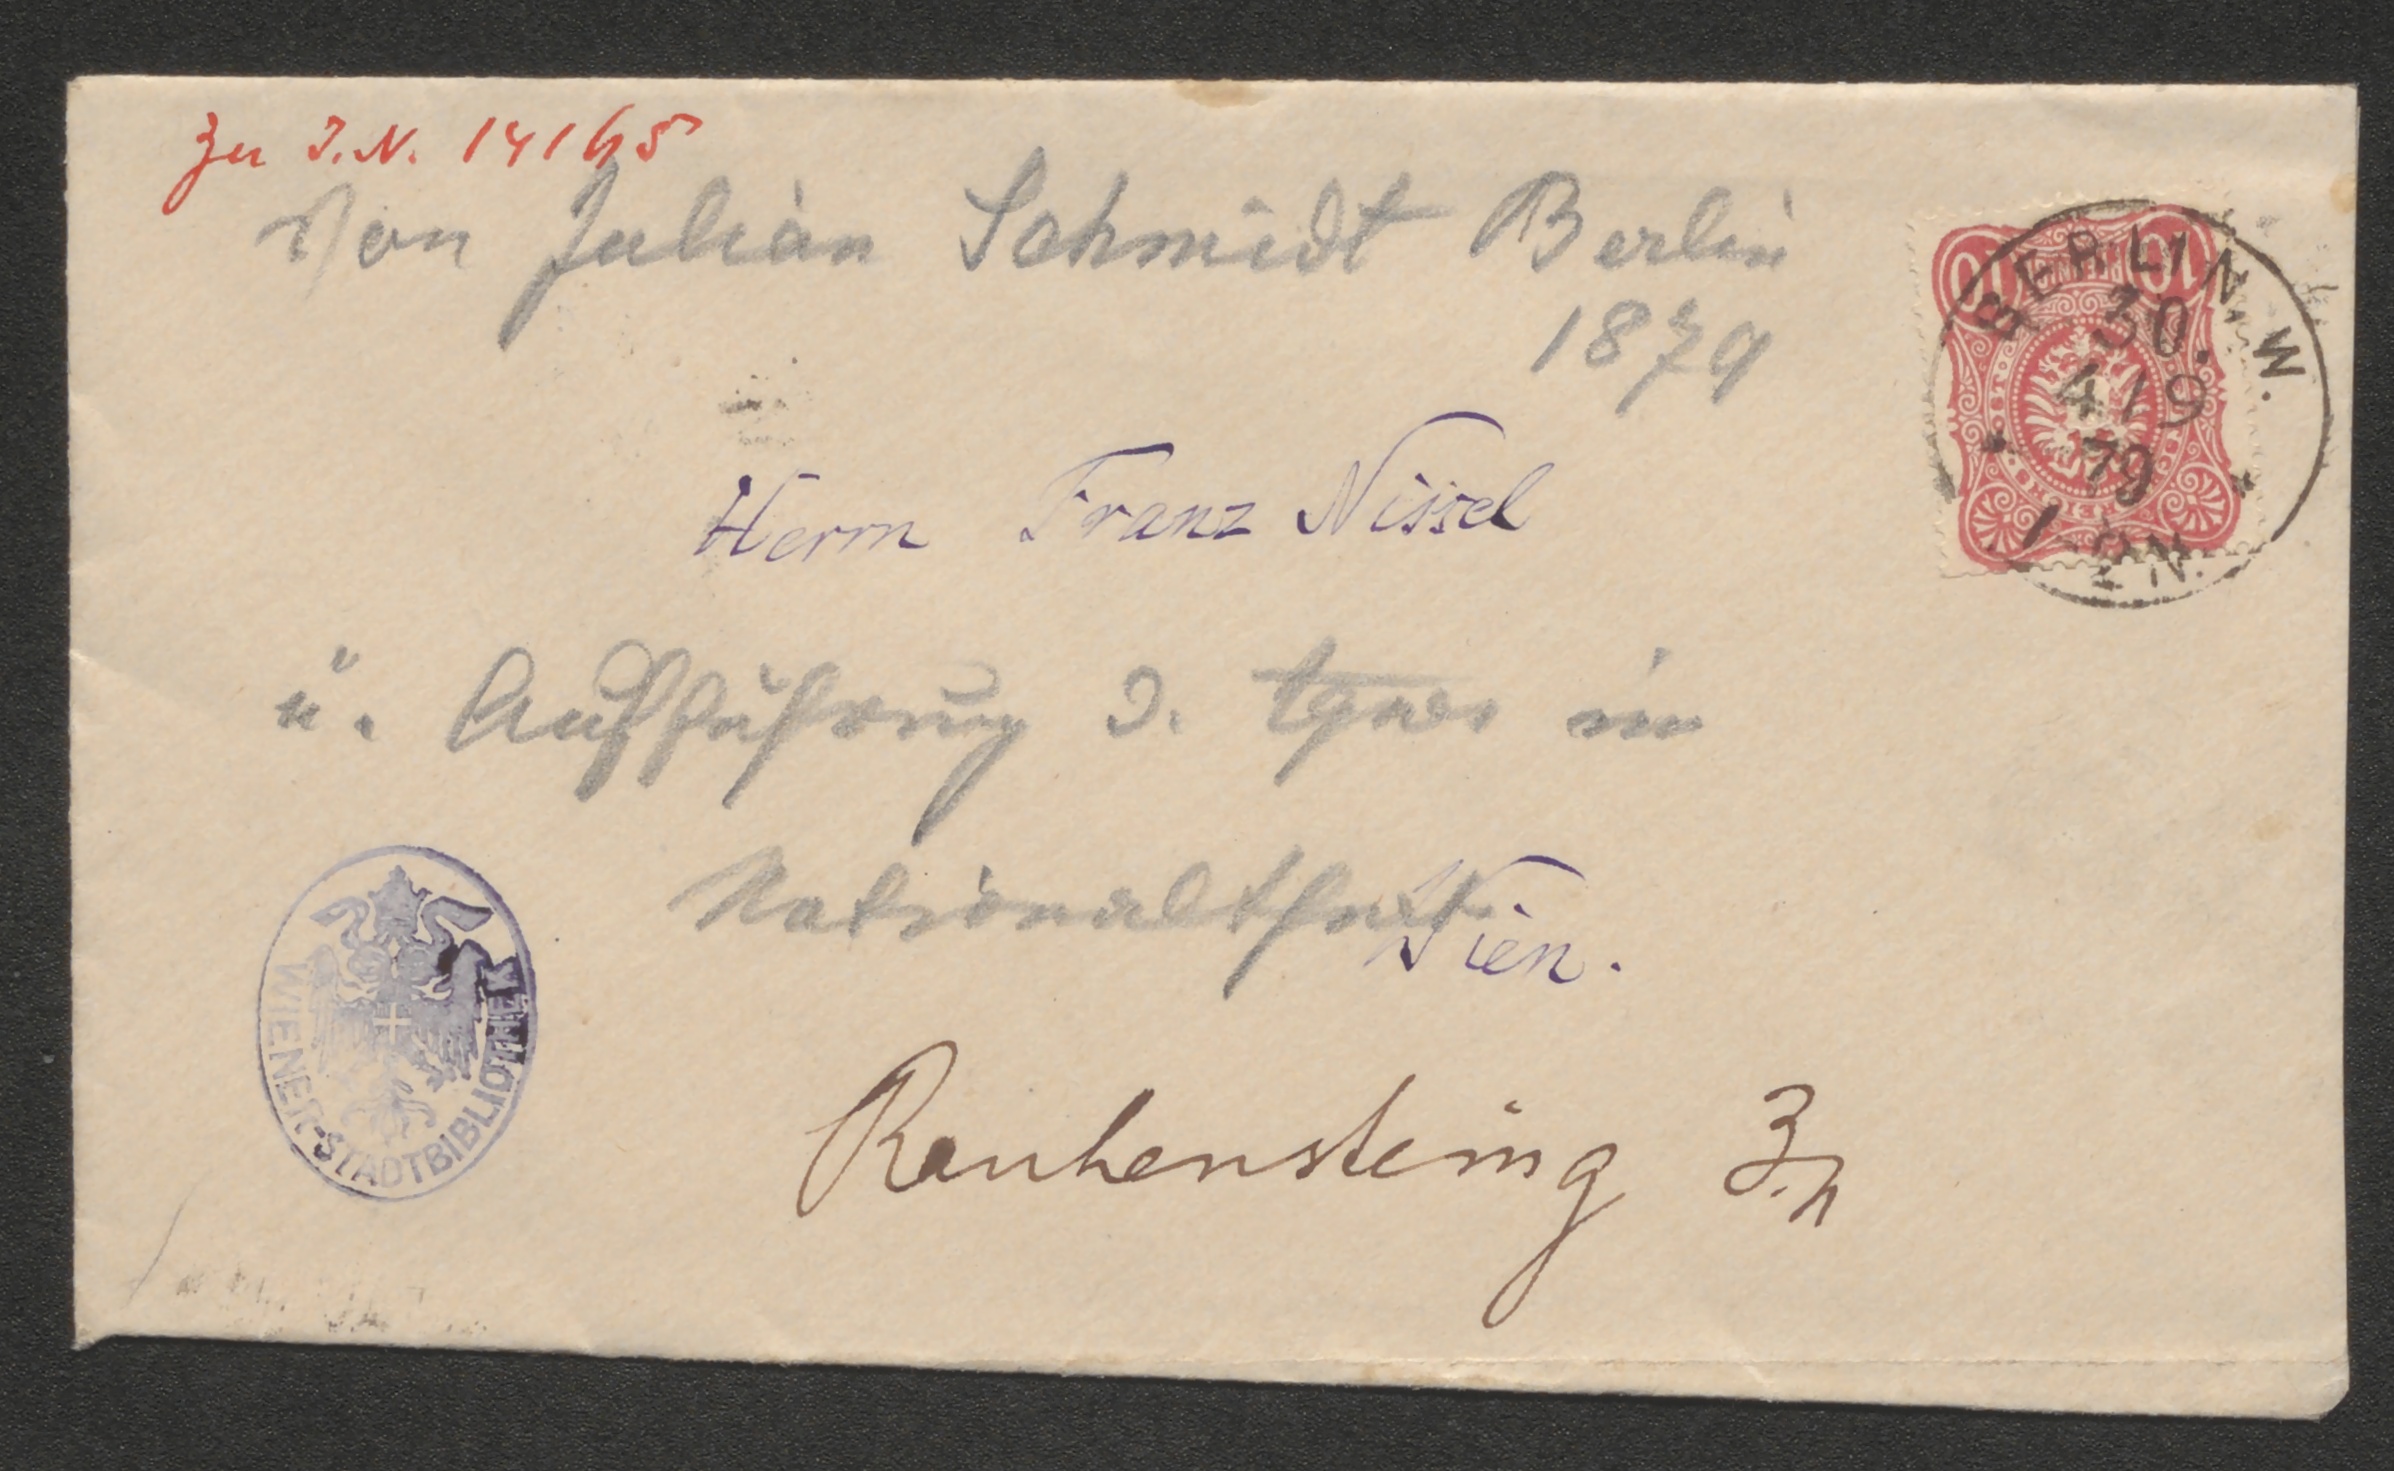 zu I.N. 14165
Von Julian Schmidt Berlin
1879
10 PFENNIG 10
BERLIN, W.
30.
4 79
79
1-2N.
Herrn Franz Nissel
ü. Aufführung d. Agnes im
Nationaltheat.
Wien.
WIENER STADTBIBLIOTHEK
Rauhensteing 3.